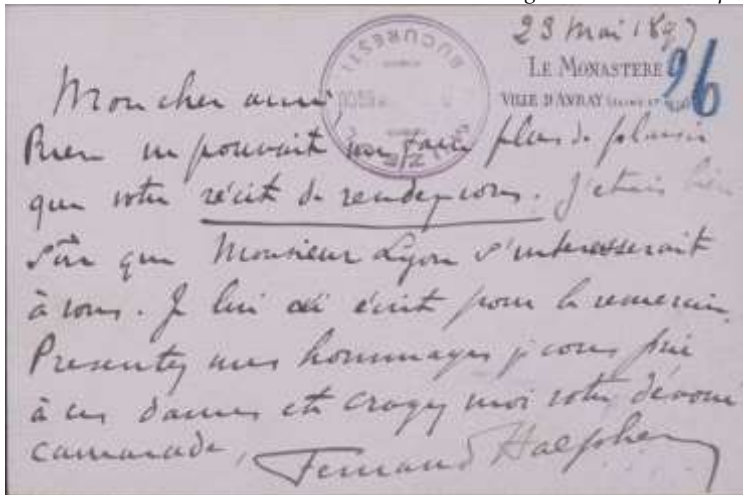 23 Mai 1897
LE MONASTERE
96
VILLE D'AVRAY
BUCURESTI
Mon cher ami,
Rien ne pouvait me faire plus de plaisir
que votre récit de rendez-vous. J'étais bien
sûr que Monsieur Lyon s'interesserait
à vous. Je lui ai écrit pour le remercier.
Presentez mes hommages je vous prie
à ces dames et croyez moi votre dévoué
camarade,
Fernand Halphen